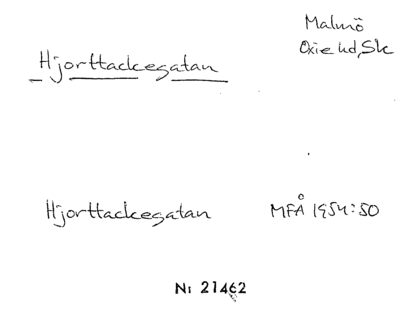 Malmö
Oxie hd, Sk
Hjorttackegatan
Hjorttackegatan MFÅ 1954:50
N: 21462